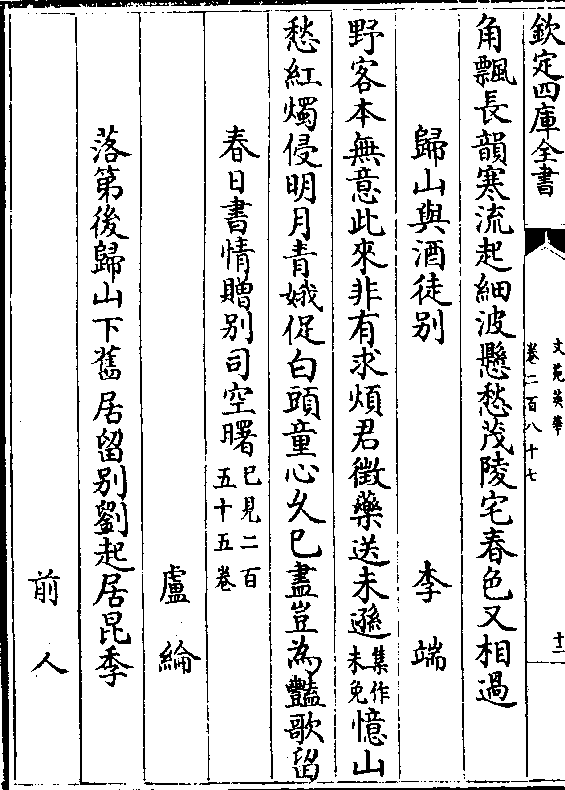 欽定四庫全書
文苑英華
卷二百八十七
十二
角飄長韻寒流起細波懸愁茂陵宅春色又相過
歸山與酒徒别
李端
野客本無意此來非有求煩君徵藥送未遜集作未免憶山
愁紅燭侵明月青娥促白頭童心久已盡豈為豔歌留
春日書情贈别司空曙已見二百五十五卷
盧綸
落第後歸山下舊居留别劉起居昆季
前人